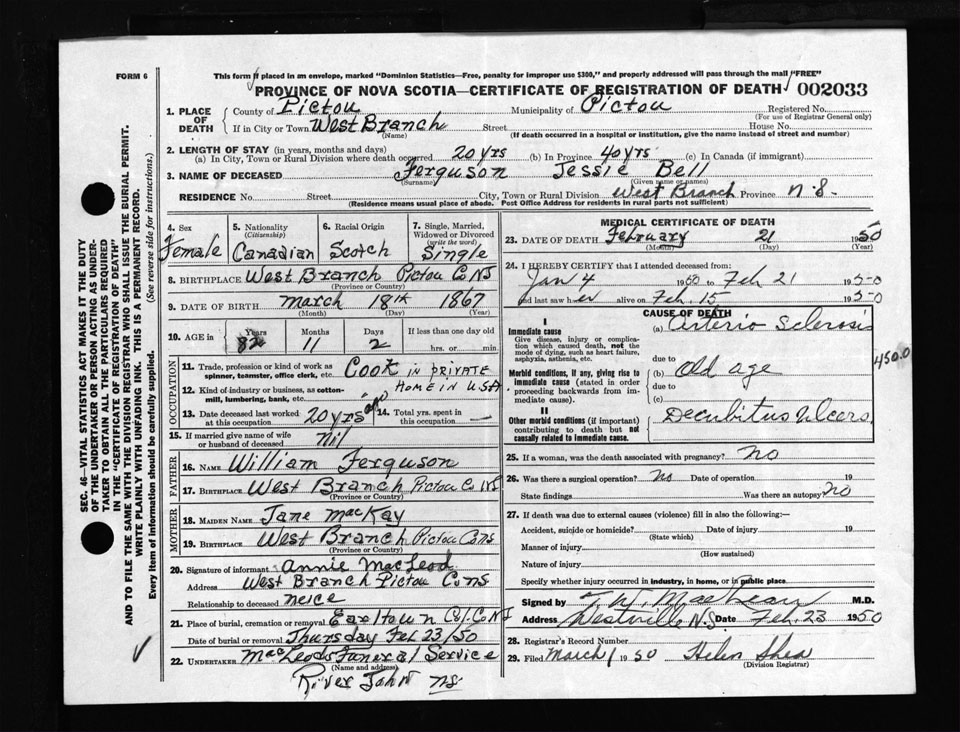 FORM 6
This form if placed in an envelope, marked "Dominion Statistics—Free, penalty for improper use $300," and properly addressed will pass through the mail "FREE"
PROVINCE OF NOVA SCOTIA—CERTIFICATE OF REGISTRATION OF DEATH 002033
1. PLACE OF DEATH
County of Pictou Municipality of Pictou Registered No.
(For use of Registrar General only)
If in City or Town West Branch Street House No.
(Name) (If death occurred in a hospital or institution, give the name instead of street and number)
2. LENGTH OF STAY (in years, months and days)
(a) In City, Town or Rural Division where death occurred 20 yrs (b) In Province 40 yrs (c) In Canada (if immigrant)
3. NAME OF DECEASED Ferguson Jessie Bell
(Surname) (Given name or names)
RESIDENCE No. Street City, Town or Rural Division West Branch Province N.S.
(Residence means usual place of abode. Post Office Address for residents in rural parts not sufficient)
4. Sex Female
5. Nationality (Citizenship) Canadian
6. Racial Origin Scotch
7. Single, Married, Widowed or Divorced (write the word) Single
8. BIRTHPLACE West Branch Pictou Co NS
(Province or Country)
9. DATE OF BIRTH March 18th 1867
(Month) (Day) (Year)
10. AGE in Years 82 Months 11 Days 2 If less than one day old hrs. or min.
OCCUPATION
11. Trade, profession or kind of work as spinner, teamster, office clerk, etc. Cook in private
12. Kind of industry or business, as cotton-mill, lumbering, bank, etc. Home in USA
13. Date deceased last worked at this occupation 20 yrs ago
14. Total yrs. spent in this occupation —
15. If married give name of wife or husband of deceased nil
FATHER
16. NAME William Ferguson
17. BIRTHPLACE West Branch Pictou Co NS
(Province or Country)
MOTHER
18. MAIDEN NAME Jane MacKay
19. BIRTHPLACE West Branch Pictou Co NS
(Province or Country)
20. Signature of informant Annie MacLeod
Address West Branch Pictou Co NS
Relationship to deceased neice
21. Place of burial, cremation or removal Earltown Col. Co NS
Date of burial or removal Thursday Feb 23/50
22. UNDERTAKER MacLeods Funeral Service
(Name and address)
River John NS
MEDICAL CERTIFICATE OF DEATH
23. DATE OF DEATH February 21 1950
(Month) (Day)
24. I HEREBY CERTIFY that I attended deceased from:
Jan 4 1950 to Feb 21 1950
and last saw her alive on Feb. 15 1950
CAUSE OF DEATH
I
Immediate cause
Give disease, injury or complication which caused death, not the mode of dying, such as heart failure, asphyxia, asthenia, etc.
(a) Arterio Sclerosis
due to
Morbid conditions, if any, giving rise to immediate cause (stated in order proceeding backwards from immediate cause).
(b) Old age
due to
(c)
450.0
II
Other morbid conditions (if important) contributing to death but not causally related to immediate cause.
Decubitus Ulcers
25. If a woman, was the death associated with pregnancy? No
26. Was there a surgical operation? No Date of operation 19
State findings Was there an autopsy? no
27. If death was due to external causes (violence) fill in also the following:—
Accident, suicide or homicide? Date of injury 19
(State which)
Manner of injury
(How sustained)
Nature of injury
Specify whether injury occurred in industry, in home, or in public place
Signed by T. W. MacLean M.D.
Address Westville N.S. Date Feb. 23 1950
28. Registrar's Record Number
29. Filed March 1 1950 Helen Shea
(Division Registrar)
SEC. 46—VITAL STATISTICS ACT MAKES IT THE DUTY
OF THE UNDERTAKER OR PERSON ACTING AS UNDERTAKER TO OBTAIN ALL THE PARTICULARS REQUIRED
IN THE "CERTIFICATE OF REGISTRATION OF DEATH"
AND TO FILE THE SAME WITH THE DIVISION REGISTRAR WHO SHALL ISSUE THE BURIAL PERMIT.
WRITE PLAINLY WITH UNFADING INK. THIS IS A PERMANENT RECORD.
Every item of information should be carefully supplied. (See reverse side for instructions.)